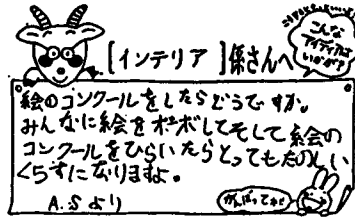 [インテリア]係さんへ
こんな
アイディアは
いかが?
絵のコンクールをしたらどうですか。
みんなに絵をボボしてそして絵の
コンクールをひらいたらとってもたのしい
くらすになりますよ。
A.Sより
がんばってね!